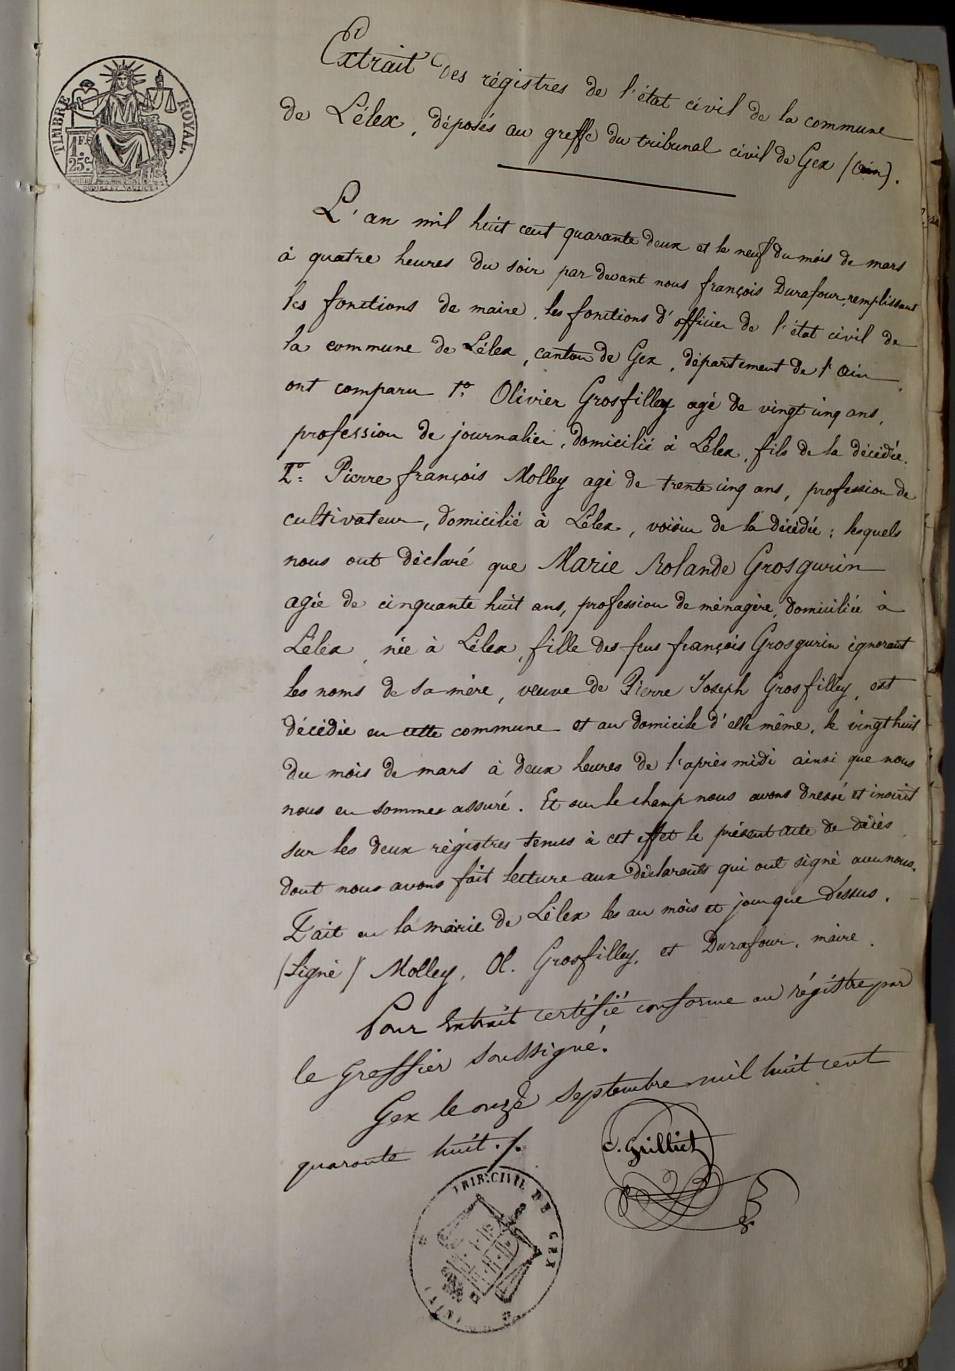 TIMBRE ROYAL.
1 FR
25 C.
Extrait des régistres de l'état civil de la commune
de Lélex, déposés au greffe du tribunal civil de Gex (Ain).
L'an mil huit cent quarante deux et le neuf du mois de mars
à quatre heures du soir par devant nous françois Durafour, remplissant
les fonctions de maire, les fonctions d'officier de l'état civil de
la commune de Lélex, canton de Gex, département de l'Ain,
ont comparu 1º. Olivier Grosfilley agé de vingt cinq ans,
profession de journalier, domicilié à Lélex, fils de la décédée.
2º. Pierre françois Molley agé de trente cinq ans, profession de
cultivateur, domicilié à Lélex, voisin de la décédée ; lesquels
nous ont déclaré que Marie Rolande Grosgurin
agée de cinquante huit ans, profession de ménagère, domiciliée à
Lélex, née à Lélex, fille des feus françois Grosgurin ignorant
les noms de sa mère, veuve de Pierre Joseph Grosfilley, est
décédée en cette commune et au domicile d'elle même, le vingt huit
du mois de mars à deux heures de l'après midi ainsi que nous
nous en sommes assuré. Et sur le champ nous avons dressé et inscrit
sur les deux régistres tenus à cet effet le présent acte de décès
dont nous avons fait lecture aux déclarants qui ont signé avec nous.
Fait en la mairie de Lélex les an mois et jour que dessus.
(Signé) Molley, Ol. Grosfilley, et Durafour, maire.
Pour Extrait certifié conforme au régistre par
le Greffier soussigné.
Gex le onze septembre mil huit cent
quarante huit./.
C. Grilliet
TRIB. CIVIL DE GEX
(AIN)